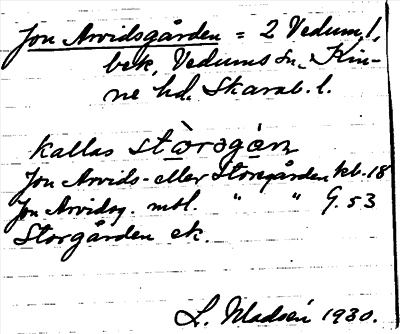 Jon Arvidsgården = 2 Vedum, 1,
bek, Vedums sn, Kin-
ne hd. Skarab. l.
kallas stòrəgàɳ
Jon Arvids- eller Storegården kb. 18
Jon Arvidsg. mtl. " " G. 53
Storgården ek.
L. Madsén 1930.